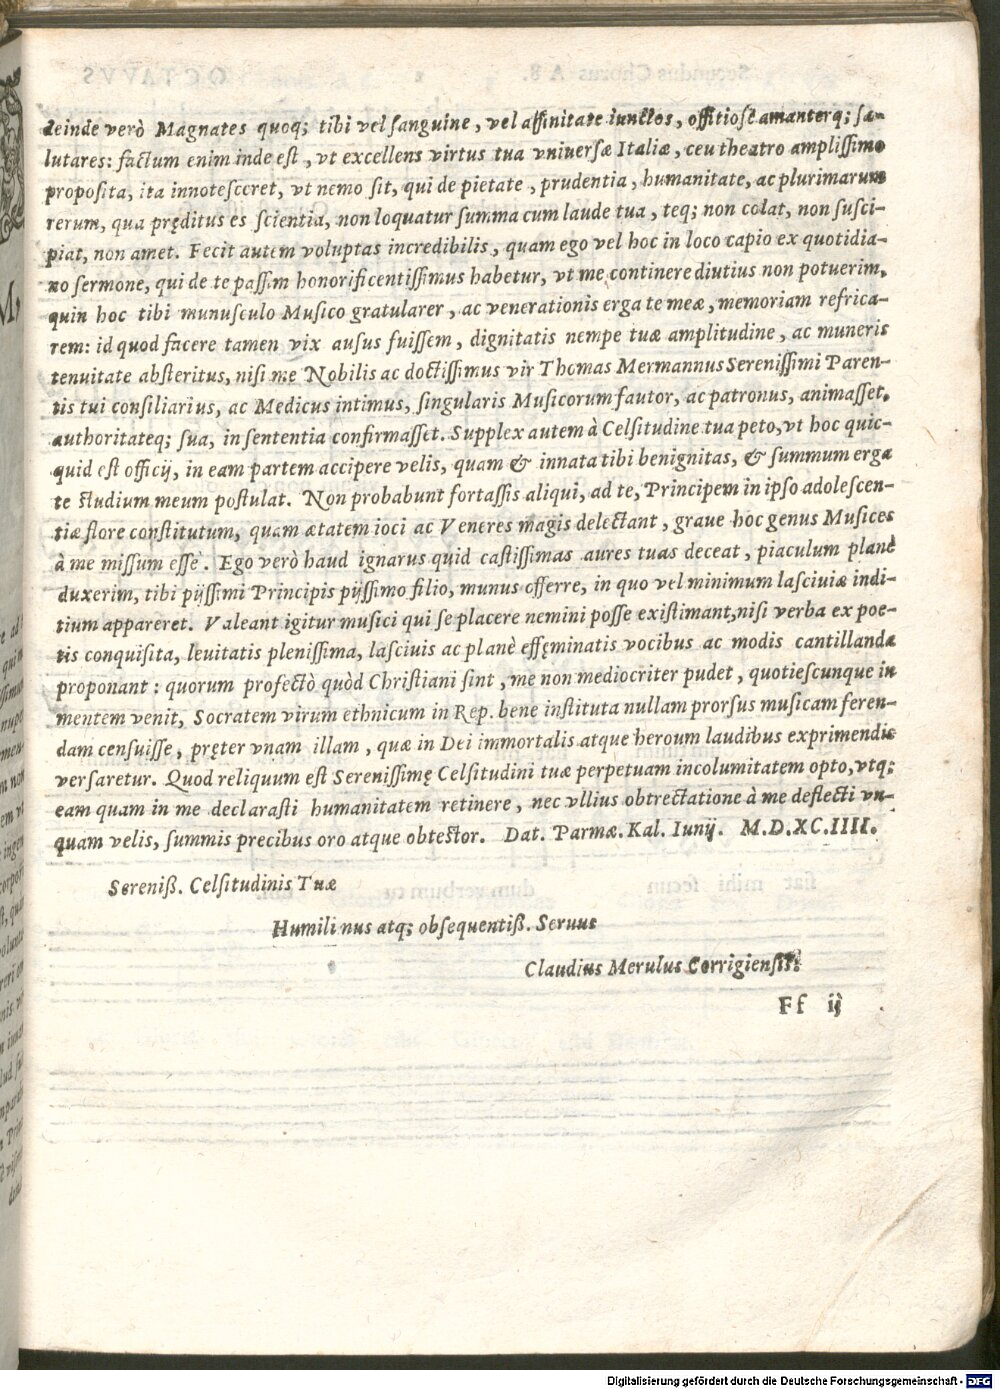 deinde verò Magnates quoq; tibi vel sanguine, vel affinitate iunctos, offitiosè amanterq; sa-
lutares: factum enim inde est, vt excellens virtus tua vniuersæ Italiæ, ceu theatro amplissimo
proposita, ita innotesceret, vt nemo sit, qui de pietate, prudentia, humanitate, ac plurimarum
rerum, qua pręditus es scientia, non loquatur summa cum laude tua, teq; non colat, non susci-
piat, non amet. Fecit autem voluptas incredibilis, quam ego vel hoc in loco capio ex quotidia-
no sermone, qui de te passim honorificentissimus habetur, vt me continere diutius non potuerim,
quin hoc tibi munusculo Musico gratularer, ac venerationis erga te meæ, memoriam refrica-
rem: id quod facere tamen vix ausus fuissem, dignitatis nempe tuæ amplitudine, ac muneris
tenuitate absteritus, nisi me Nobilis ac doctissimus vir Thomas Mermannus Serenissimi Paren-
tis tui consiliarius, ac Medicus intimus, singularis Musicorum fautor, ac patronus, animasset,
authoritateq; sua, in sententia confirmasset. Supplex autem à Celsitudine tua peto, vt hoc quic-
quid est officij, in eam partem accipere velis, quam & innata tibi benignitas, & summum erga
te studium meum postulat. Non probabunt fortassis aliqui, ad te, Principem in ipso adolescen-
tiæ flore constitutum, quam ætatem ioci ac Veneres magis delectant, graue hoc genus Musices
à me missum esse. Ego verò haud ignarus quid castissimas aures tuas deceat, piaculum planè
duxerim, tibi pijssimi Principis pijssimo filio, munus offerre, in quo vel minimum lasciuiæ indi-
tium appareret. Valeant igitur musici qui se placere nemini posse existimant, nisi verba ex poe-
tis conquisita, leuitatis plenissima, lasciuis ac planè effęminatis vocibus ac modis cantillanda
proponant: quorum profectò quòd Christiani sint, me non mediocriter pudet, quotiescunque in
mentem venit, Socratem virum ethnicum in Rep. bene instituta nullam prorsus musicam feren-
dam censuisse, pręter vnam illam, quæ in Dei immortalis atque heroum laudibus exprimendis
versaretur. Quod reliquum est Serenissimę Celsitudini tuæ perpetuam incolumitatem opto, vtq;
eam quam in me declarasti humanitatem retinere, nec vllius obtrectatione à me deflecti vn-
quam velis, summis precibus oro atque obtestor. Dat. Parmæ. Kal. Iunij. M.D.XC.IIII.
Sereniß. Celsitudinis Tuæ
Humilimus atq; obsequentiß. Seruus
Claudius Merulus Corrigiensis.
Ff ij
Digitalisierung gefördert durch die Deutsche Forschungsgemeinschaft - DFG